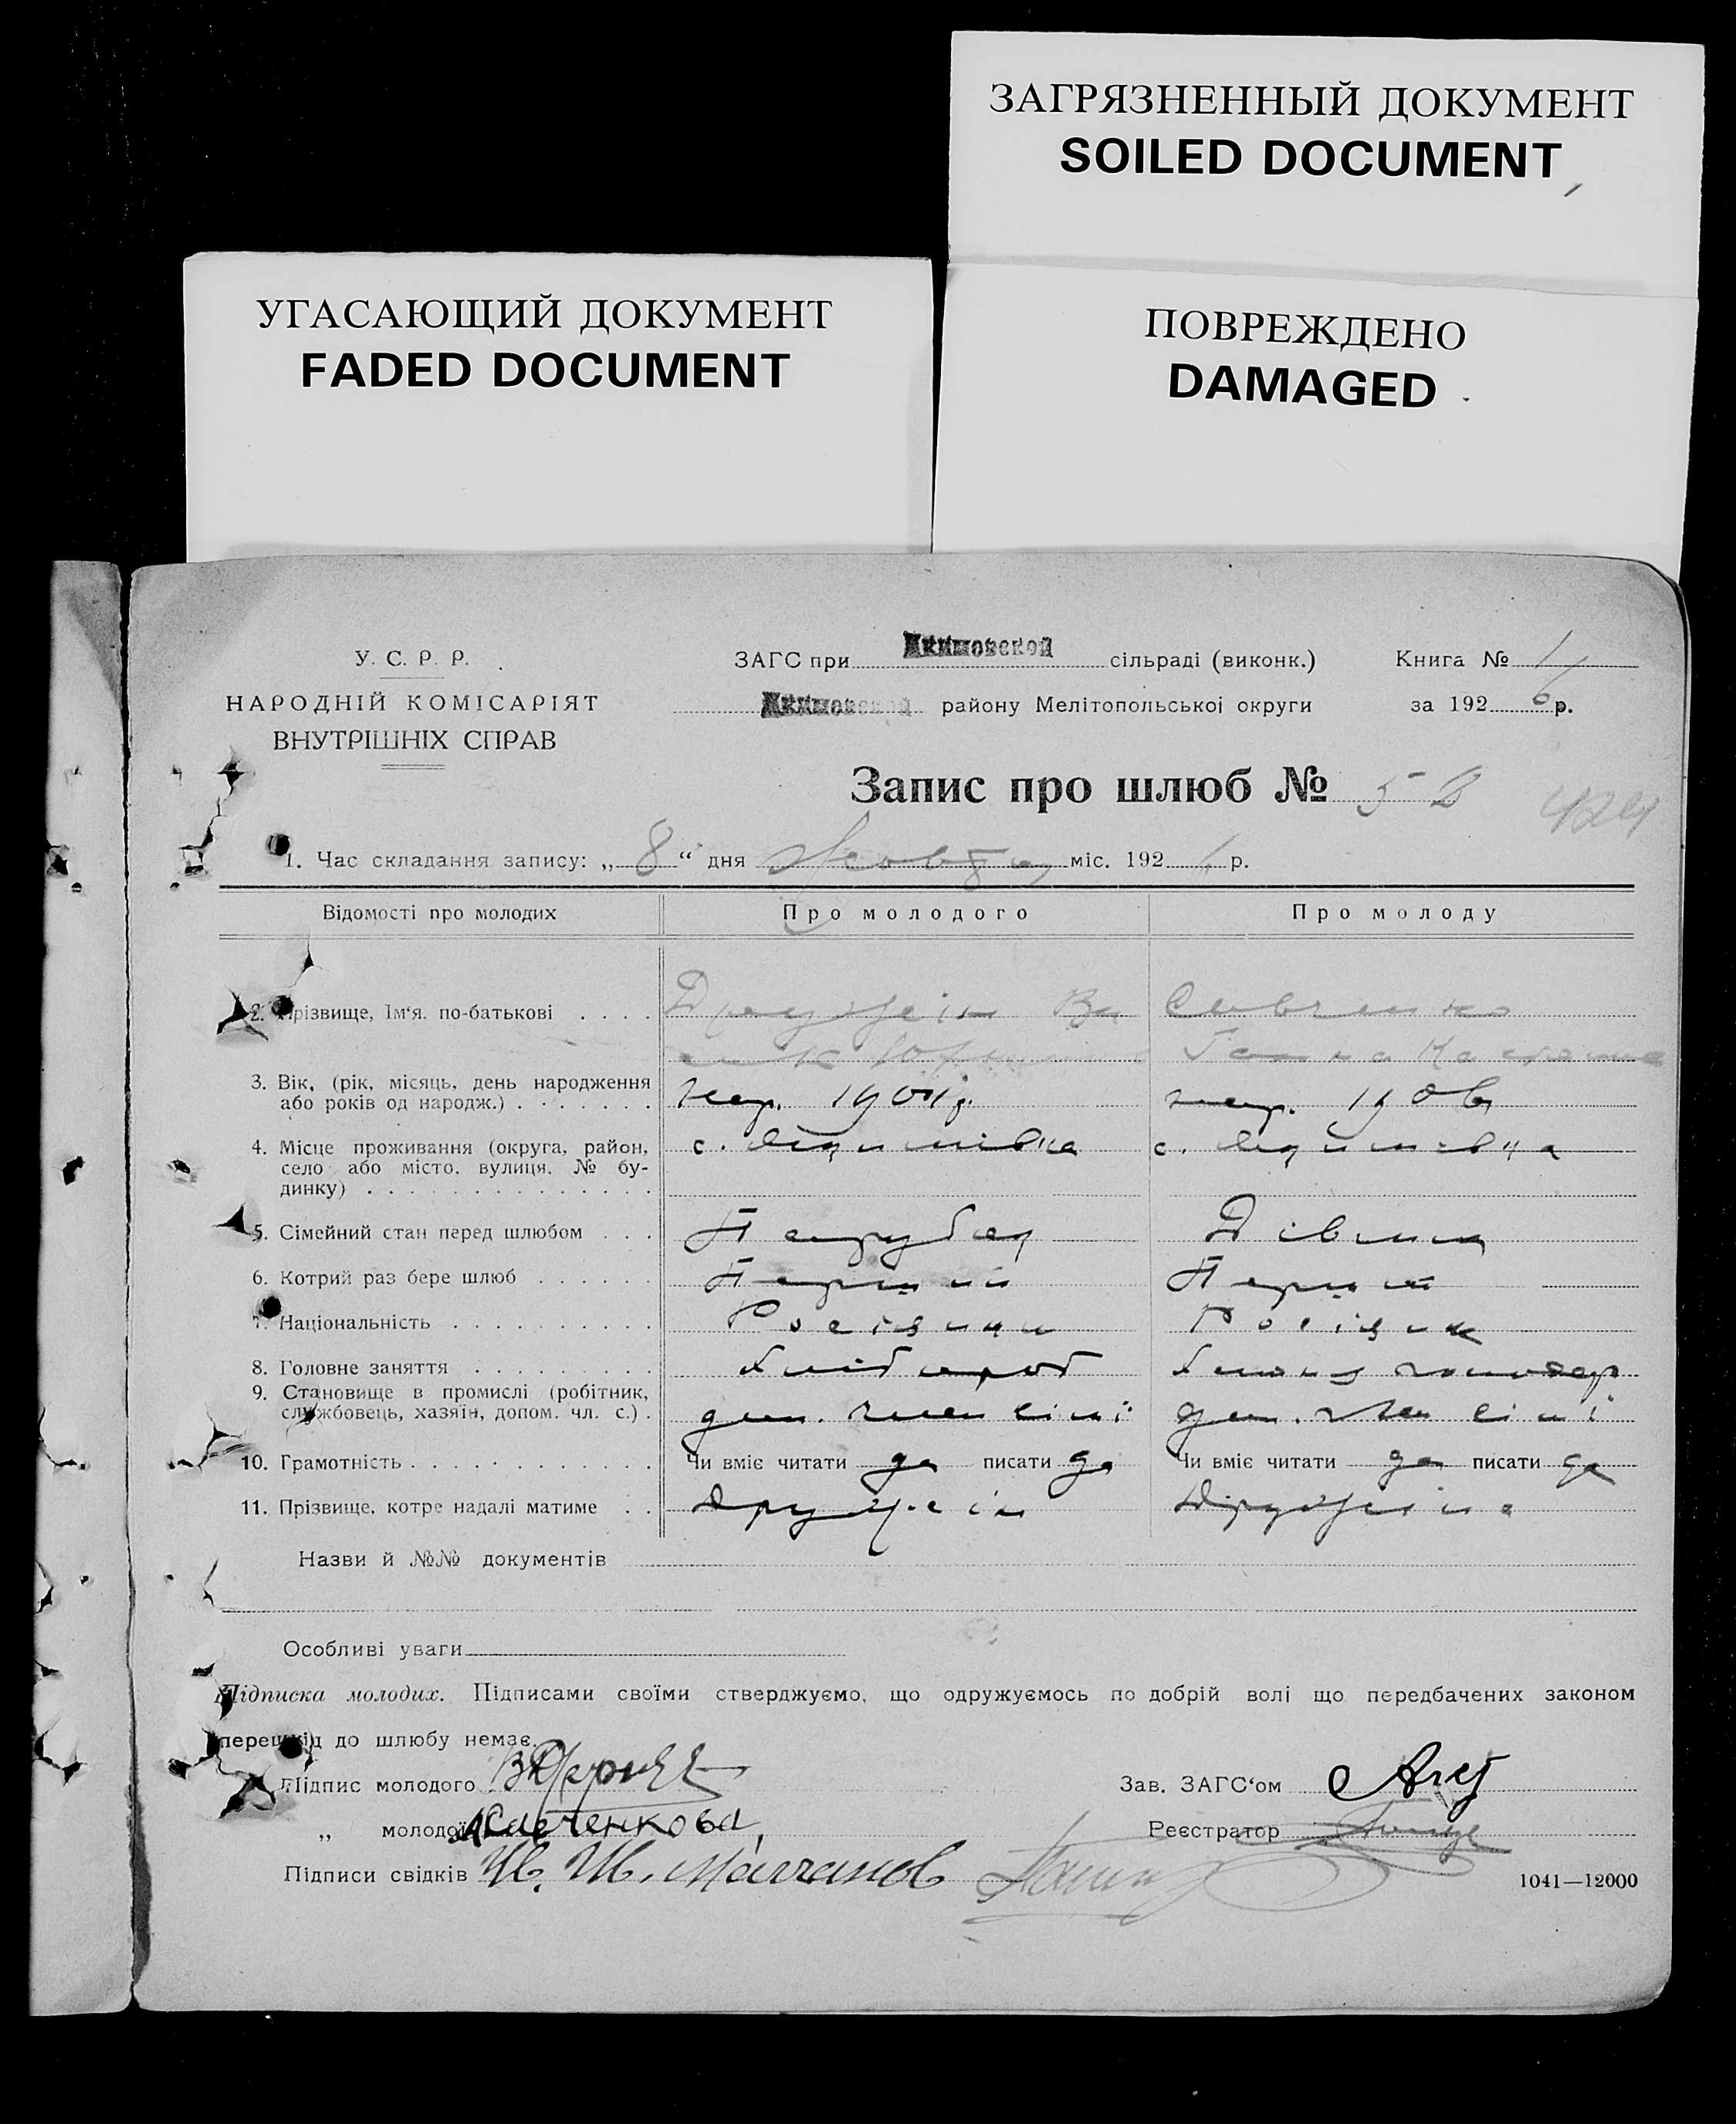 ЗАГРЯЗНЕННЫЙ ДОКУМЕНТ
SOILED DOCUMENT
УГАСАЮЩИЙ ДОКУМЕНТ
FADED DOCUMENT
ПОВРЕЖДЕНО
DAMAGED
У. С. Р. Р.
НАРОДНІЙ КОМІСАРІЯТ
ВНУТРІШНІХ СПРАВ
ЗАГС при Акимовской сільраді (виконк.) Книга № 1
Акимовской району Мелітопольської округи за 1926 р.
Запис про шлюб № 52
1. Час складання запису: „8“ дня Жовтня міс. 1926 р.
Відомості про молодих Про молодого Про молоду
2. Прізвище, Ім'я, по-батькові Дружин Савченко
Ганна
3. Вік, (рік, місяць, день народження нар. 1904 р. нар. 1906
або років од народж.)
4. Місце проживання (округа, район, с. Якимівка с. Якимівка
село або місто, вулиця, № бу-
динку)
5. Сімейний стан перед шлюбом Парубок Дівиця
6. Котрий раз бере шлюб Перший Перший
7. Національність
8. Головне заняття Хлібороб
9. Становище в промислі (робітник, доп. член сімї доп. член сімї
службовець, хазяїн, допом. чл. с.)
10. Грамотність Чи вміє читати да писати да Чи вміє читати да писати да
11. Прізвище, котре надалі матиме Дружин Дружина
Назви й №№ документів
Особливі уваги
Підписка молодих. Підписами своїми стверджуємо, що одружуємось по добрій волі що передбачених законом
перешкід до шлюбу немає.
Підпис молодого
Зав. ЗАГС'ом
„ молодої Савченкова
Реєстратор
Підписи свідків
1041—12000